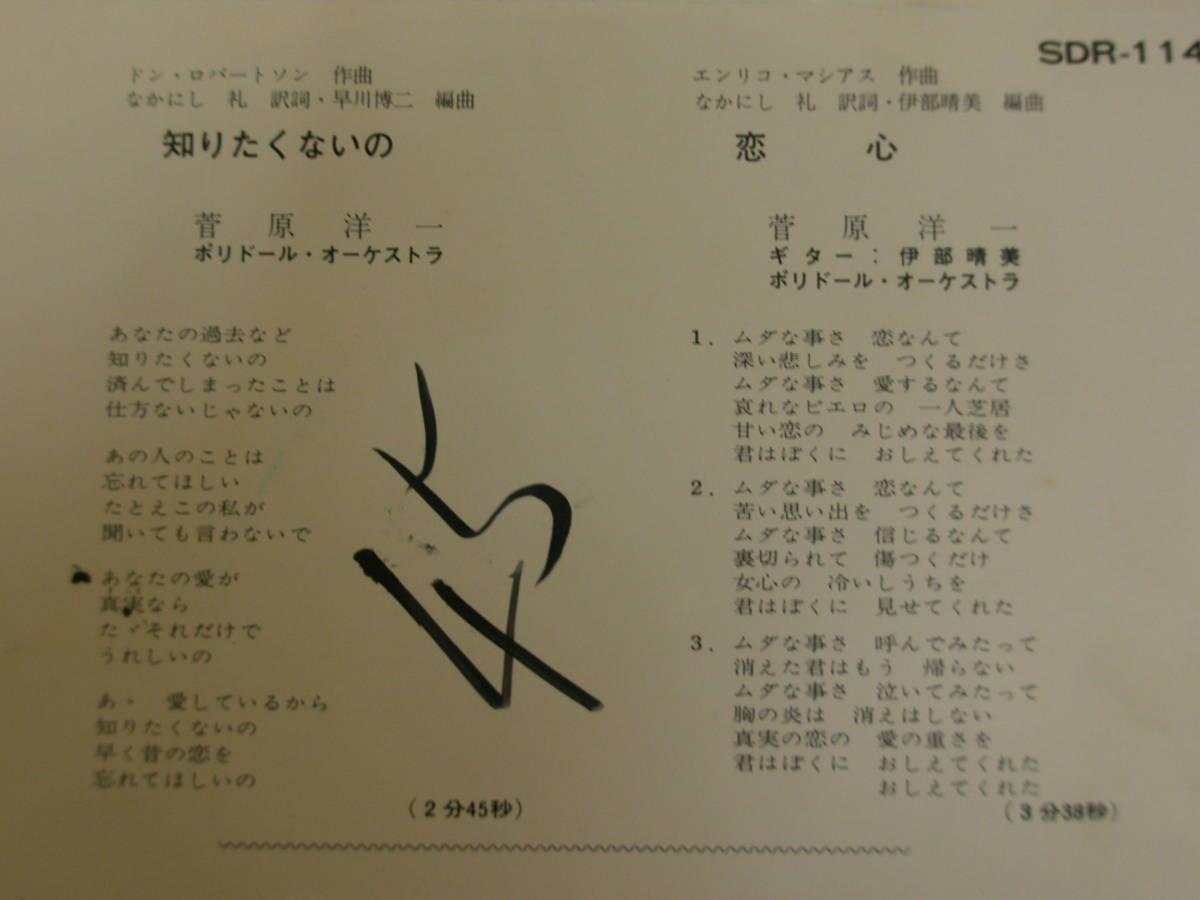 SDR-114
ドン・ロバートソン 作曲
なかにし 礼 訳詞・早川博二 編曲
知りたくないの
菅原洋一
ポリドール・オーケストラ
あなたの過去など
知りたくないの
済んでしまったことは
仕方ないじゃないの
あの人のことは
忘れてほしい
たとえこの私が
聞いても言わないで
あなたの愛が
真実なら
たゞそれだけで
うれしいの
あゝ 愛しているから
知りたくないの
早く昔の恋を
忘れてほしいの
(2分45秒)
エンリコ・マシアス 作曲
なかにし 礼 訳詞・伊部晴美 編曲
恋心
菅原洋一
ギター:伊部晴美
ポリドール・オーケストラ
1. ムダな事さ 恋なんて
深い悲しみを つくるだけさ
ムダな事さ 愛するなんて
哀れなピエロの 一人芝居
甘い恋の みじめな最後を
君はぼくに おしえてくれた
2. ムダな事さ 恋なんて
苦い思い出を つくるだけさ
ムダな事さ 信じるなんて
裏切られて 傷つくだけ
女心の 冷いしうちを
君はぼくに 見せてくれた
3. ムダな事さ 呼んでみたって
消えた君はもう 帰らない
ムダな事さ 泣いてみたって
胸の炎は 消えはしない
真実の恋の 愛の重さを
君はぼくに おしえてくれた
おしえてくれた
(3分38秒)